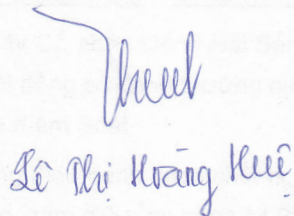 Lê Thị Hoàng Huê